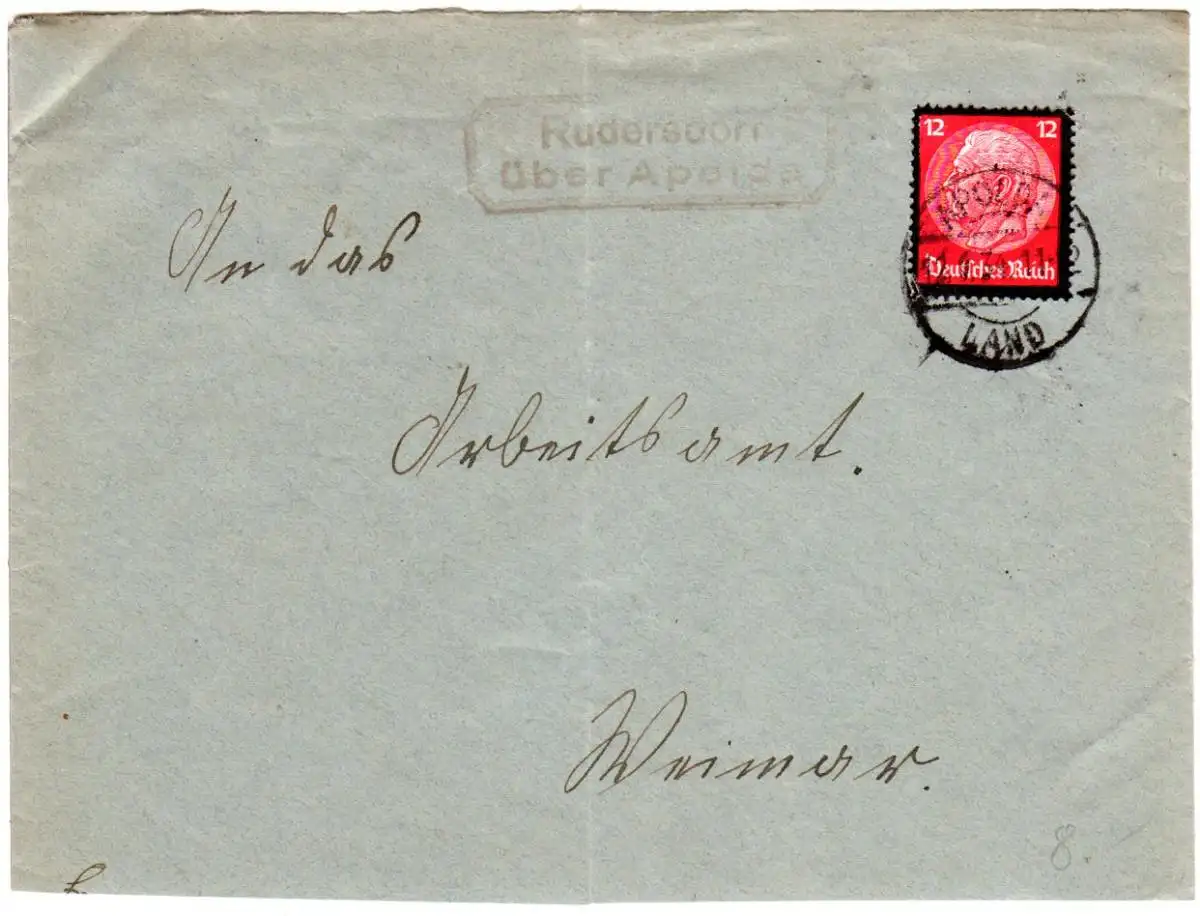 Rudersdorf
über Apolda
12 12
Deutsches Reich
APOLDA
LAND
An das
Arbeitsamt.
Weimar.
8.